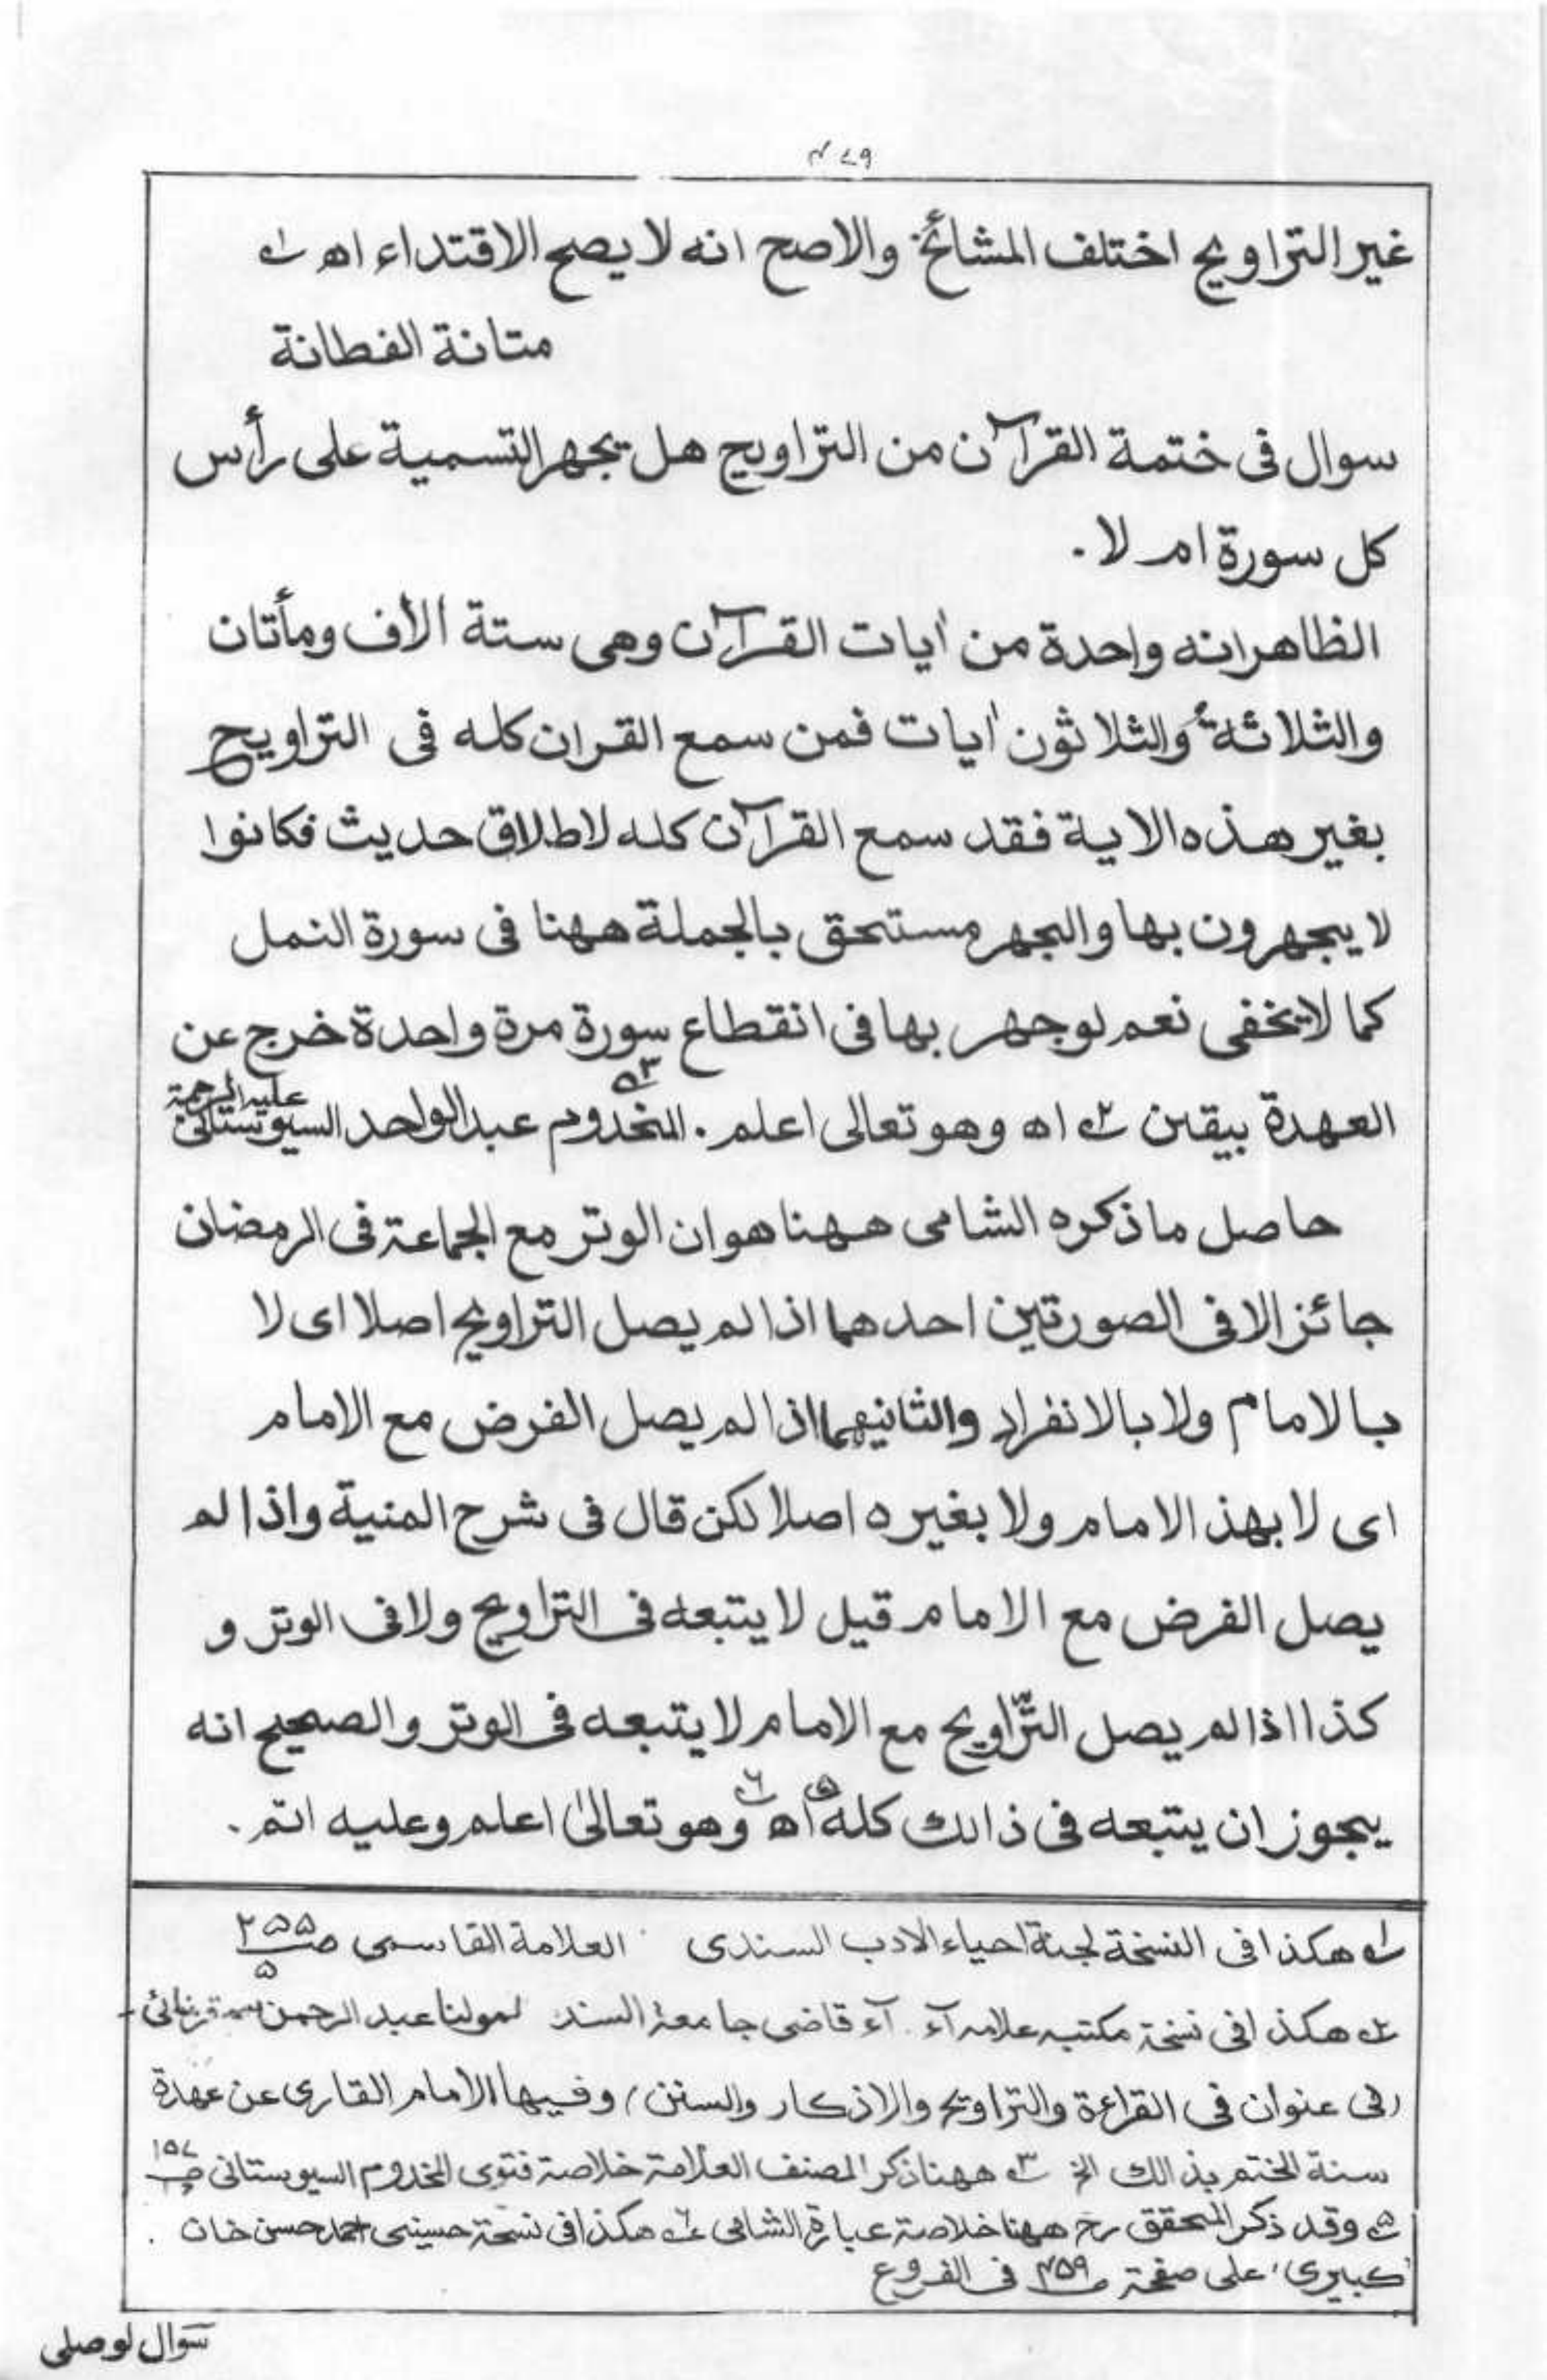 ٤٧٩
غير التراويح اختلف المشائخ والاصح انه لا يصح الاقتداء اھ ١ھ
متانة الفطانة
سوال فى ختمة القرآن من التراويح هل يجهر التسمية على رأس
كل سورة ام لا۔
الظاهر انه واحدة من اٰيات القرآن وهى ستة اٰلاف ومأتان
والثلاثة والثلاثون اٰيات فمن سمع القران كله فى التراويح
بغير هذه الاية فقد سمع القرآن كله لاطلاق حديث فكانوا
لا يجهرون بها والجهر مستحق بالجملة ههنا فى سورة النمل
كما لا يخفى نعم لو جهر بها فى انقطاع سورة مرة واحدة خرج عن
العهدة بيقين ٢ھ اھ وهو تعالى اعلم۔ المخدوم عبد الواحد السيوستانى عليه الرحمة ٣ھ
حاصل ما ذكره الشامى ههنا هو ان الوتر مع الجماعة فى الرمضان
جائز الا فى الصورتين احدهما اذا لم يصل التراويح اصلا اى لا
بالامام ولا بالانفراد والثانيهما اذا لم يصل الفرض مع الامام
اى لا بهذ الامام ولا بغيره اصلا لكن قال فى شرح المنية واذا لم
يصل الفرض مع الامام قيل لا يتبعه فى التراويح ولا فى الوتر و
كذا اذا لم يصل التّراويح مع الامام لا يتبعه فى الوتر والصحيح انه
يجوز ان يتبعه فى ذالك كله ٥ اھ ٦ھ وهو تعالىٰ اعلم وعليه اتم۔
١ھ هكذا فى النسخة لجنة احياء الادب السندى العلامة القاسمى صـ ٢٥٥
٥
٢ھ هكذا فى نسخة مكتبه علامه آء۔ آء قاضى جامعة السند لمولنا عبد الرحمن
(فى عنوان فى القراءة والتراويح والاذكار والسنن) وفيها الامام القارى عن عهدة
سنة الختم بذالك الخ ٣ھ ههنا ذكر المصنف العلامة خلاصة فتوى المخدوم السيوستانى صـ ١٥٧
٥ھ وقد ذكر المحقق رح ههنا خلاصة عبارة الشامى ٦ھ هكذا فى نسخة حسينى احمد حسن خان۔
"كبيرى" على صفحة ٤٥٩ فى الفروع
سوال لو صلى